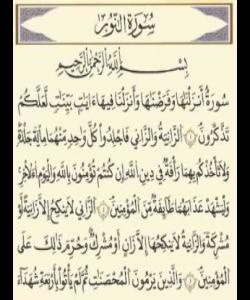 سُورَةُ النُّورِ
بِسْمِ اللَّهِ الرَّحْمَٰنِ الرَّحِيمِ
سُورَةٌ أَنزَلْنَٰهَا وَفَرَضْنَٰهَا وَأَنزَلْنَا فِيهَآ ءَايَٰتٍۭ بَيِّنَٰتٍ لَّعَلَّكُمْ
تَذَكَّرُونَ ١ ٱلزَّانِيَةُ وَٱلزَّانِي فَٱجْلِدُوا۟ كُلَّ وَٰحِدٍ مِّنْهُمَا مِا۟ئَةَ جَلْدَةٍ
وَلَا تَأْخُذْكُم بِهِمَا رَأْفَةٌ فِي دِينِ ٱللَّهِ إِن كُنتُمْ تُؤْمِنُونَ بِٱللَّهِ وَٱلْيَوْمِ ٱلْءَاخِرِ
وَلْيَشْهَدْ عَذَابَهُمَا طَآئِفَةٌ مِّنَ ٱلْمُؤْمِنِينَ ٢ ٱلزَّانِي لَا يَنكِحُ إِلَّا زَانِيَةً أَوْ
مُشْرِكَةً وَٱلزَّانِيَةُ لَا يَنكِحُهَآ إِلَّا زَانٍ أَوْ مُشْرِكٌ وَحُرِّمَ ذَٰلِكَ عَلَى
ٱلْمُؤْمِنِينَ ٣ وَٱلَّذِينَ يَرْمُونَ ٱلْمُحْصَنَٰتِ ثُمَّ لَمْ يَأْتُوا۟ بِأَرْبَعَةِ شُهَدَآءَ